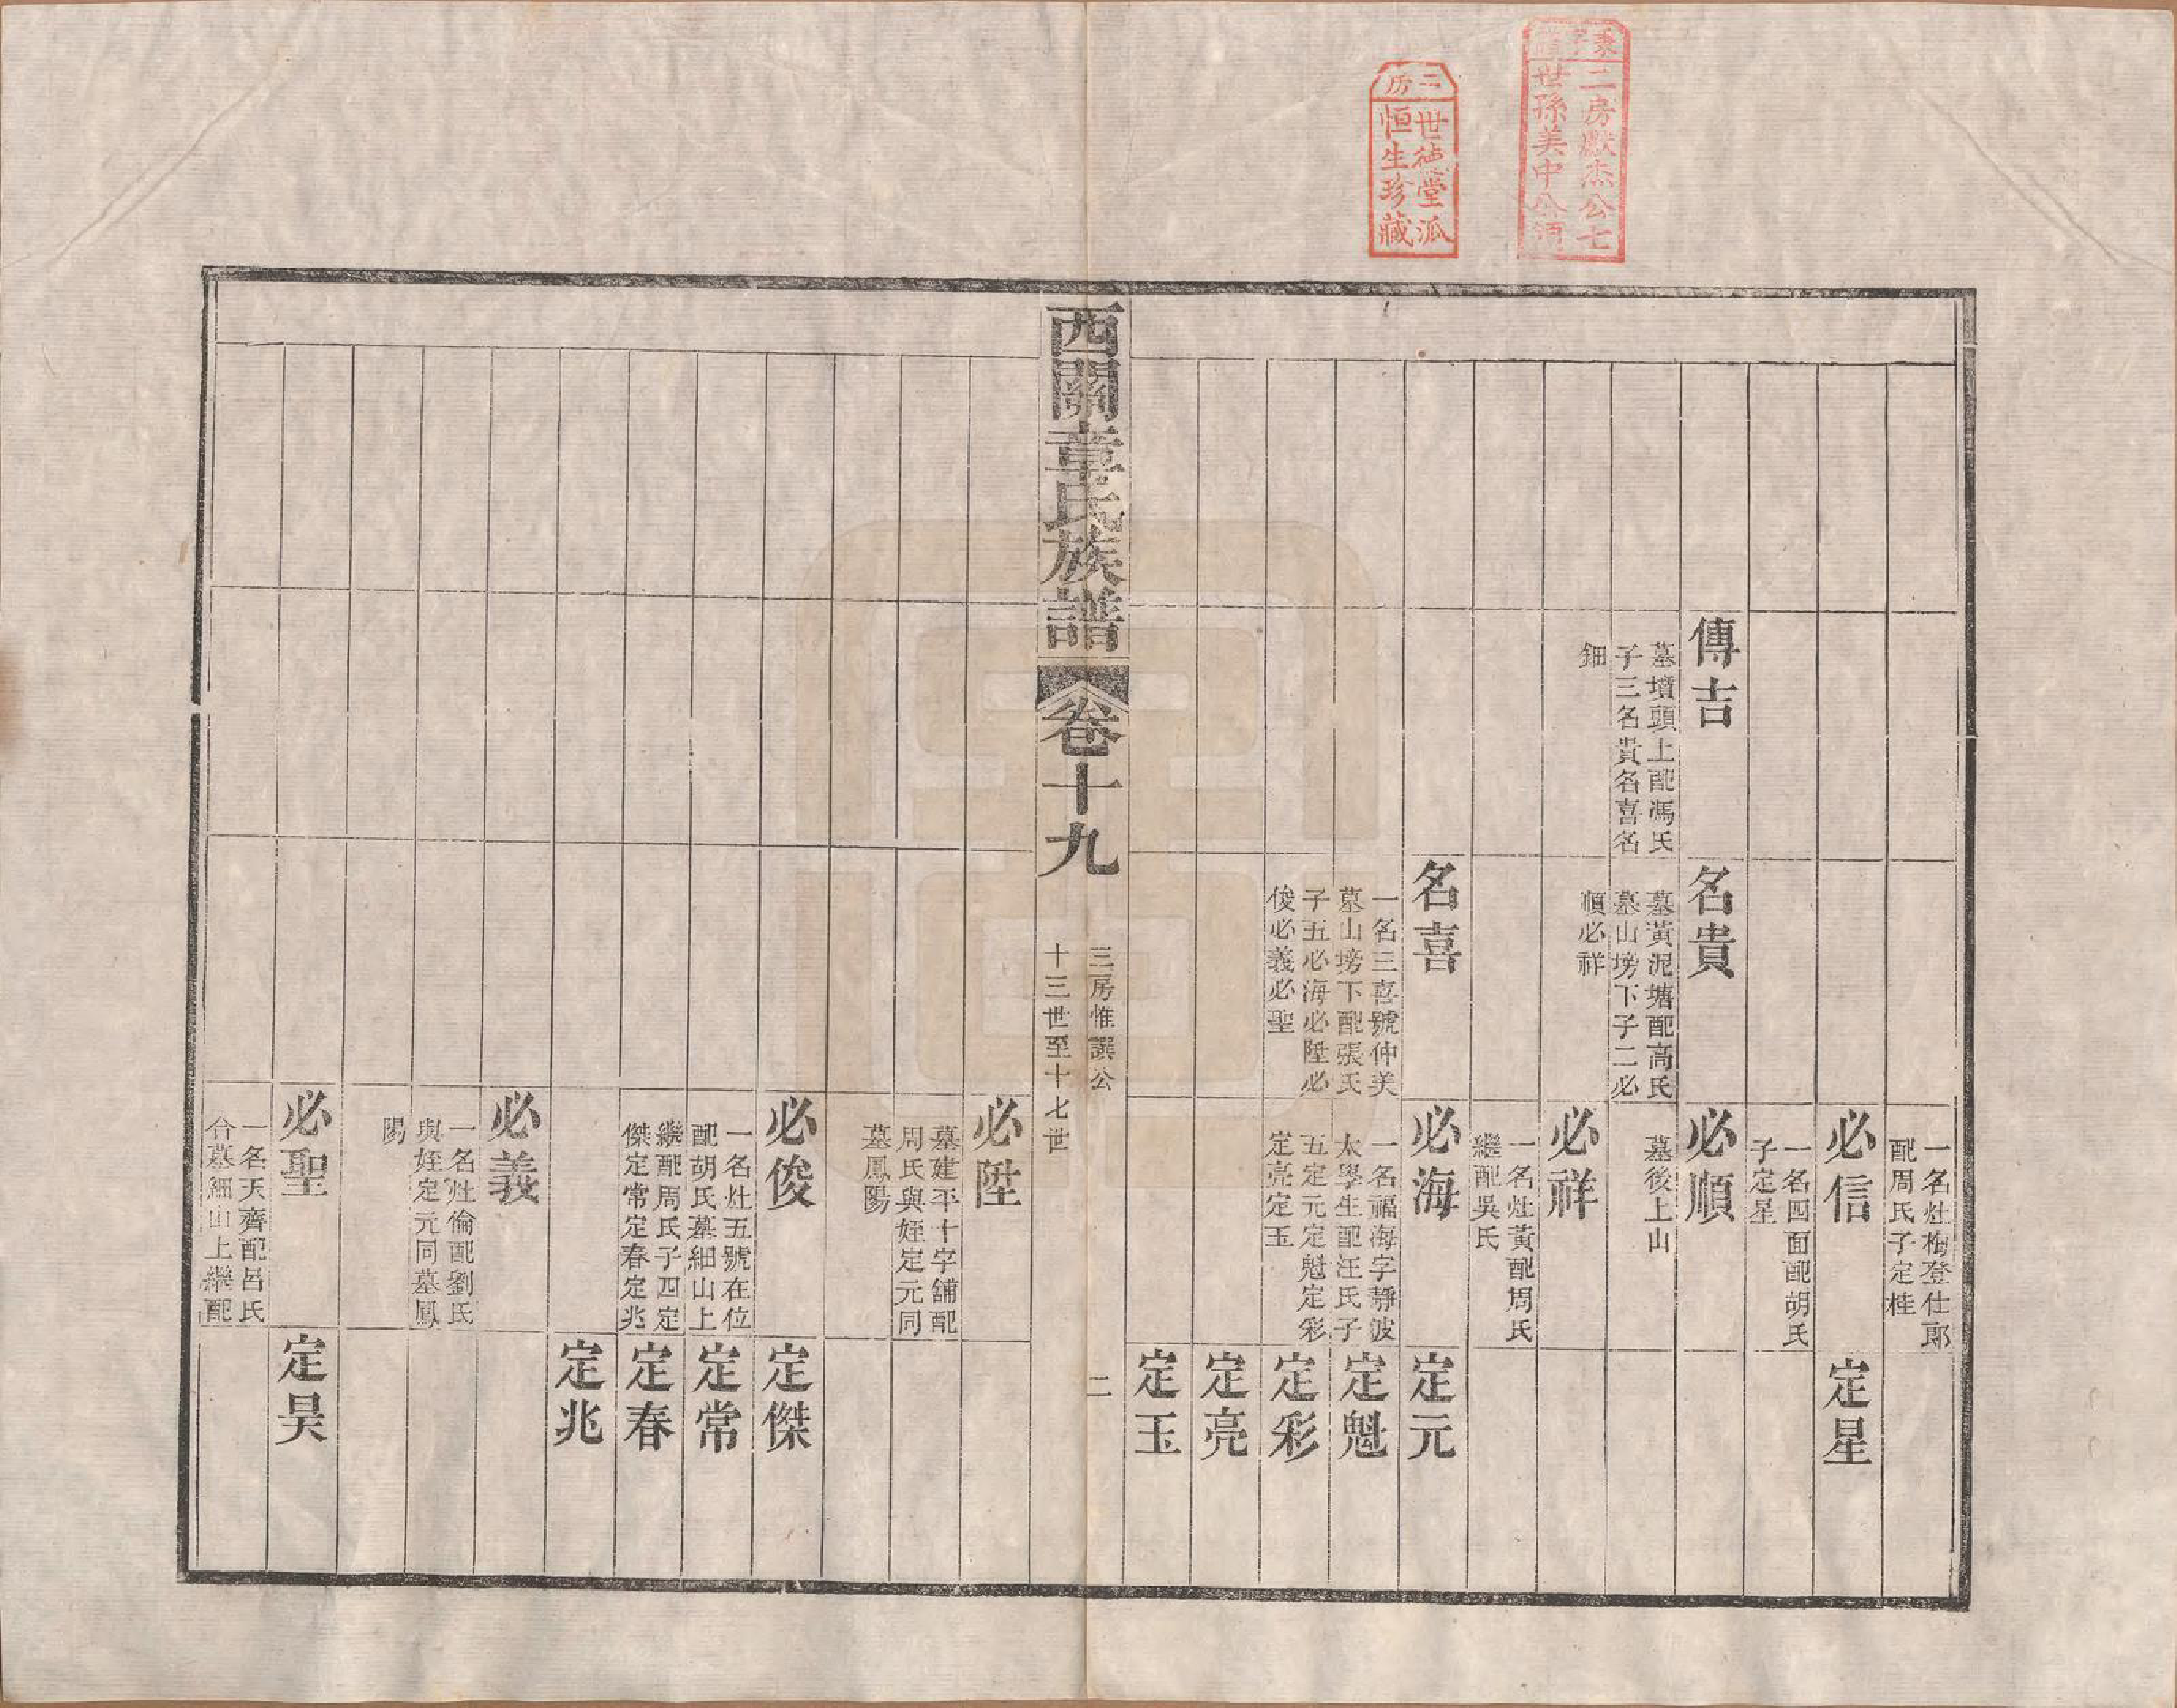 二房獻杰公七
世孫美中公酒
三房
世德堂派
恒生珍藏
一名灶梅登仕郎
配周氏子定桂
必信
一名四面配胡氏
子定星
定星
傳吉
墓墳頭上配馮氏
子三名貴名喜名
鈿
名貴
墓黃泥塘配高氏
墓山塝下子二必
順必祥
必順
墓後上山
必祥
一名灶黃配周氏
繼配吳氏
名喜
一名三喜號仲美
墓山塝下配張氏
子五必海必陞必
俊必義必聖
必海
一名福海字靜波
太學生配汪氏子
五定元定魁定彩
定亮定玉
定元
定魁
定彩
定亮
定玉
西關章氏族譜
卷十九
三房惟譔公
十三世至十七世
二
必陞
墓建平十字舖配
周氏與姪定元同
墓鳳陽
必俊
一名灶五號在位
配胡氏墓細山上
繼配周氏子四定
傑定常定春定兆
定傑
定常
定春
定兆
必義
一名灶倫配劉氏
與姪定元同墓鳳
陽
必聖
一名天齊配呂氏
合墓細山上繼配
定昊